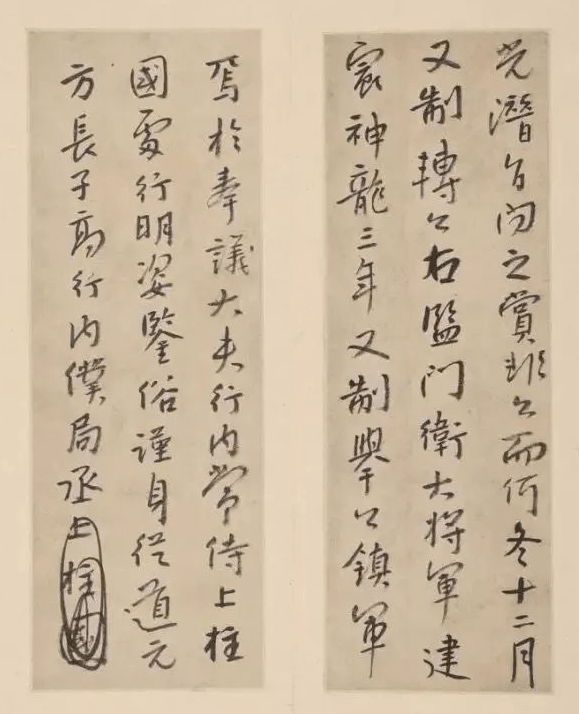 光潛之賞非公而何冬十二月
又制轉公右監門衛大将軍建
宸神龍三年又制舉公鎮軍
於奉議大夫行内常侍上柱
國行明姿鑒俗謹身從道元
方長子高行内僕局丞上柱國